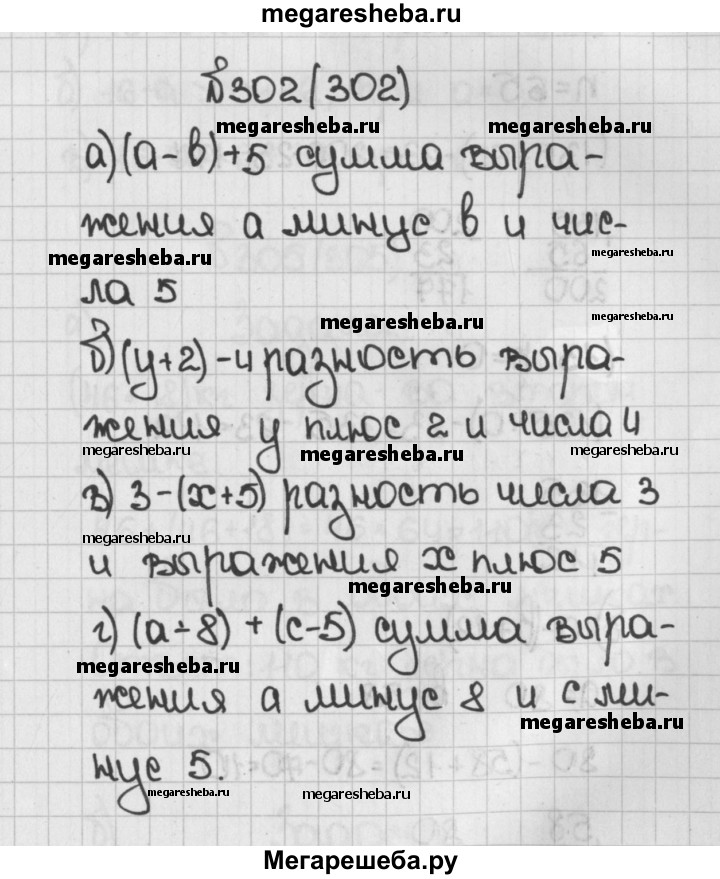 megaresheba.ru
№302(302)
megaresheba.ru megaresheba.ru
а)(а-в)+5 сумма выра-
жения а минус в и чис-
megaresheba.ru megaresheba.ru
ла 5
megaresheba.ru
б)(у+2)-4 разность выра-
жения у плюс 2 и числа 4
megaresheba.ru megaresheba.ru megaresheba.ru
в) 3-(х+5) разность числа 3
megaresheba.ru
и выражения х плюс 5
megaresheba.ru
г) (а-8) + (с-5) сумма выра-
megaresheba.ru
жения а минус 8 и с ми-
megaresheba.ru
нус 5.
megaresheba.ru megaresheba.ru
Мегарешеба.ру